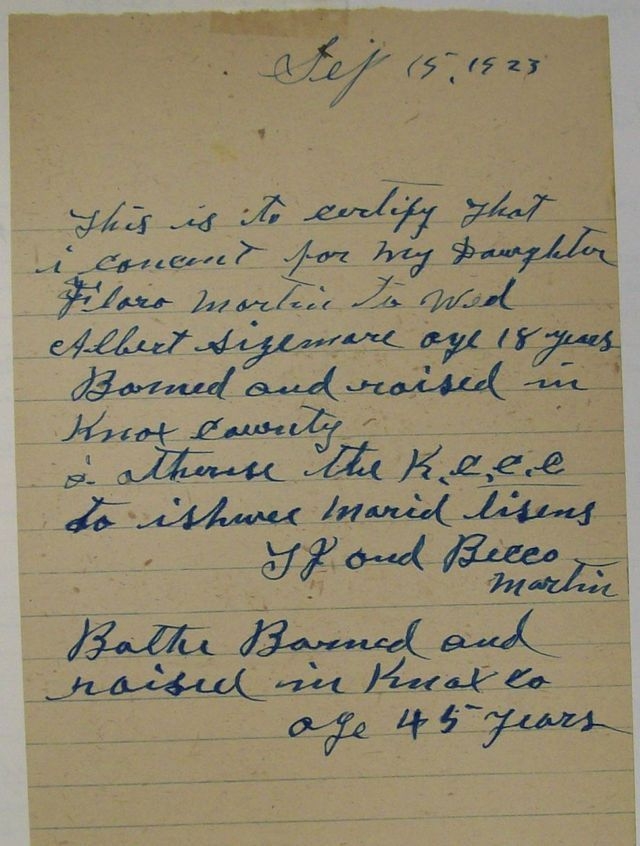 Sep 15, 1923
This is to certify that
i concent for my Daughter
Flora Martin to Wed
Albert Sizemore age 18 years
Borned and raised in
Knox County
i otherise the K.C.C.C
to ishuee Marid lisens
TJ and Becca
Martin
Bothe Borned and
raised in Knox co
age 45 years